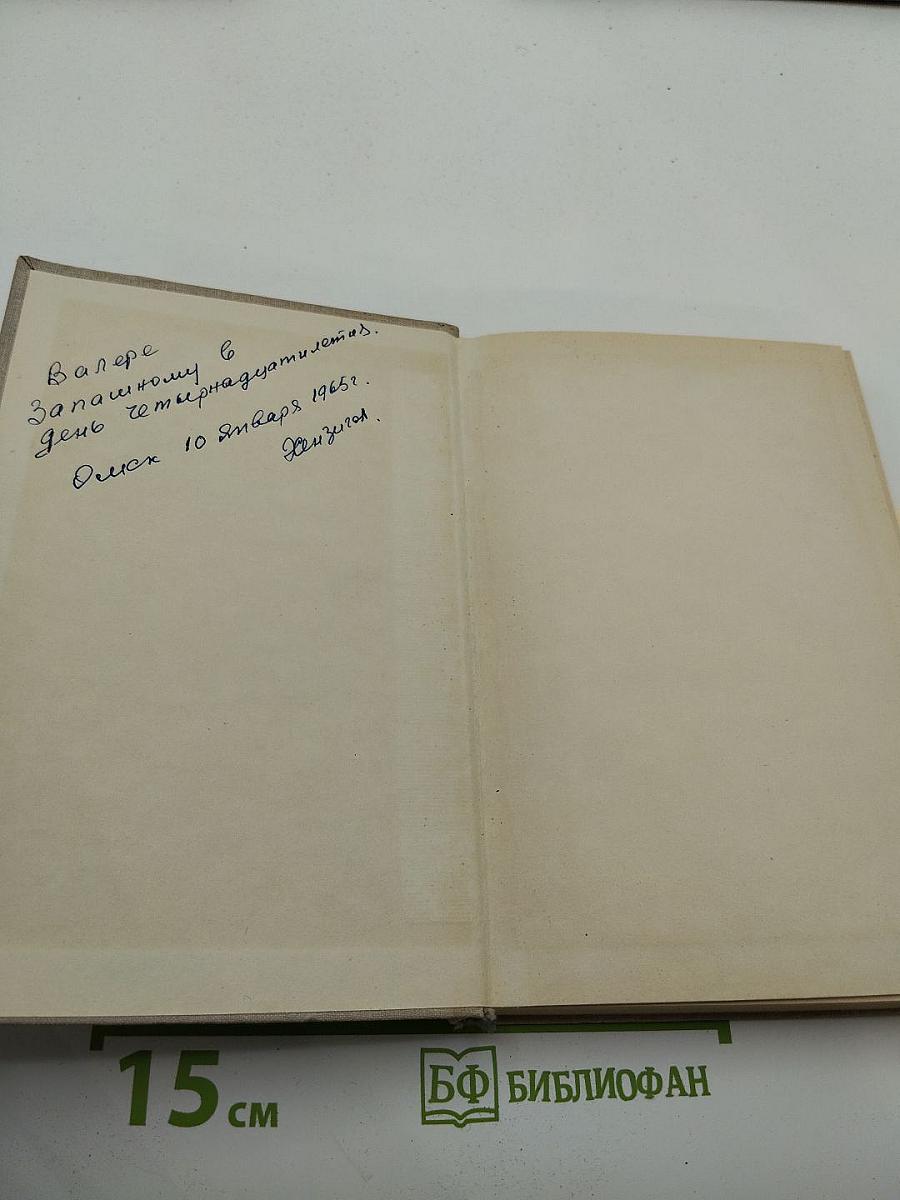 Валере
Запашному в
день четырнадцатилетия.
Омск 10 января 1965г.
15 см
БФ БИБЛИОФАН